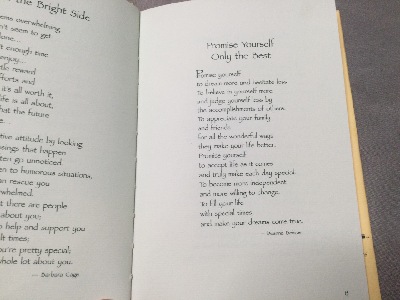 the Bright Side
overwhelming
n't seem to get
one...
t enough time
enjoy...
tile reward
fforts and
it's all worth it,
life is all about,
hat the future
e.
tive attitude by looking
sings that happen
ten go unnoticed
n to humorous situations,
an rescue you
whelmed.
t there are people
about you;
help and support you
ult times;
ou're pretty special;
whole lot about you.
— Barbara Cage
Promise Yourself
Only the Best
Promise yourself
to dream more and hesitate less
To believe in yourself more
and judge yourself less by
the accomplishments of others
To appreciate your family
and friends
for all the wonderful ways
they make your life better.
Promise yourself
to accept life as it comes
and truly make each day special.
To become more independent
and more willing to change.
To fill your life
with special times
and make your dreams come true.